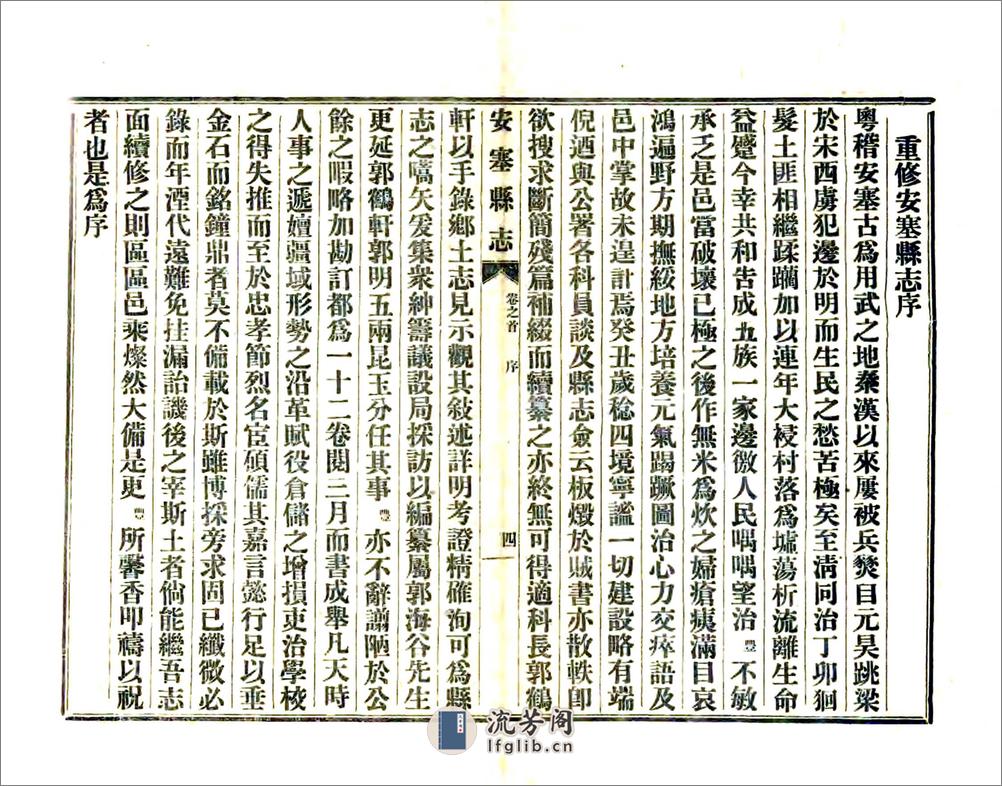 重修安塞縣志序
粵稽安塞古爲用武之地秦漢以來屢被兵燹自元昊跳梁
於宋西虜犯邊於明而生民之愁苦極矣至淸同治丁卯徊
髮土匪相繼蹂躪加以連年大祲村落爲墟蕩析流離生命
益蹙今幸共和吿成五族一家邊徼人民喁喁望治豐不敏
承乏是邑當破壞已極之後作無米爲炊之婦瘡痍滿目哀
鴻遍野方期撫綏地方培養元氣蹋蹶圖治心力交瘁語及
邑中掌故未遑計焉癸丑歲稔四境寧謐一切建設略有端
倪迺與公署各科員談及縣志僉云板燬於賊書亦散軼卽
欲搜求斷簡殘篇補綴而續纂之亦終無可得適科長郭鶴
安塞縣志
卷之首 序
四
軒以手錄鄉土志見示觀其敍述詳明考證精確洵可爲縣
志之嚆矢爰集衆紳籌議設局採訪以編纂屬郭海谷先生
更延郭鶴軒郭明五兩昆玉分任其事豐亦不辭譾陋於公
餘之暇略加勘訂都爲一十二卷閱三月而書成舉凡天時
人事之遞嬗疆域形勢之沿革賦役倉儲之增損吏治學校
之得失推而至於忠孝節烈名宦碩儒其嘉言懿行足以垂
金石而銘鐘鼎者莫不備載於斯雖博採旁求固已纖微必
錄而年湮代遠難免挂漏詒譏後之宰斯土者倘能繼吾志
面續修之則區區邑乘燦然大備是更豐所馨香叩禱以祝
者也是爲序
流芳阁
lfglib.cn